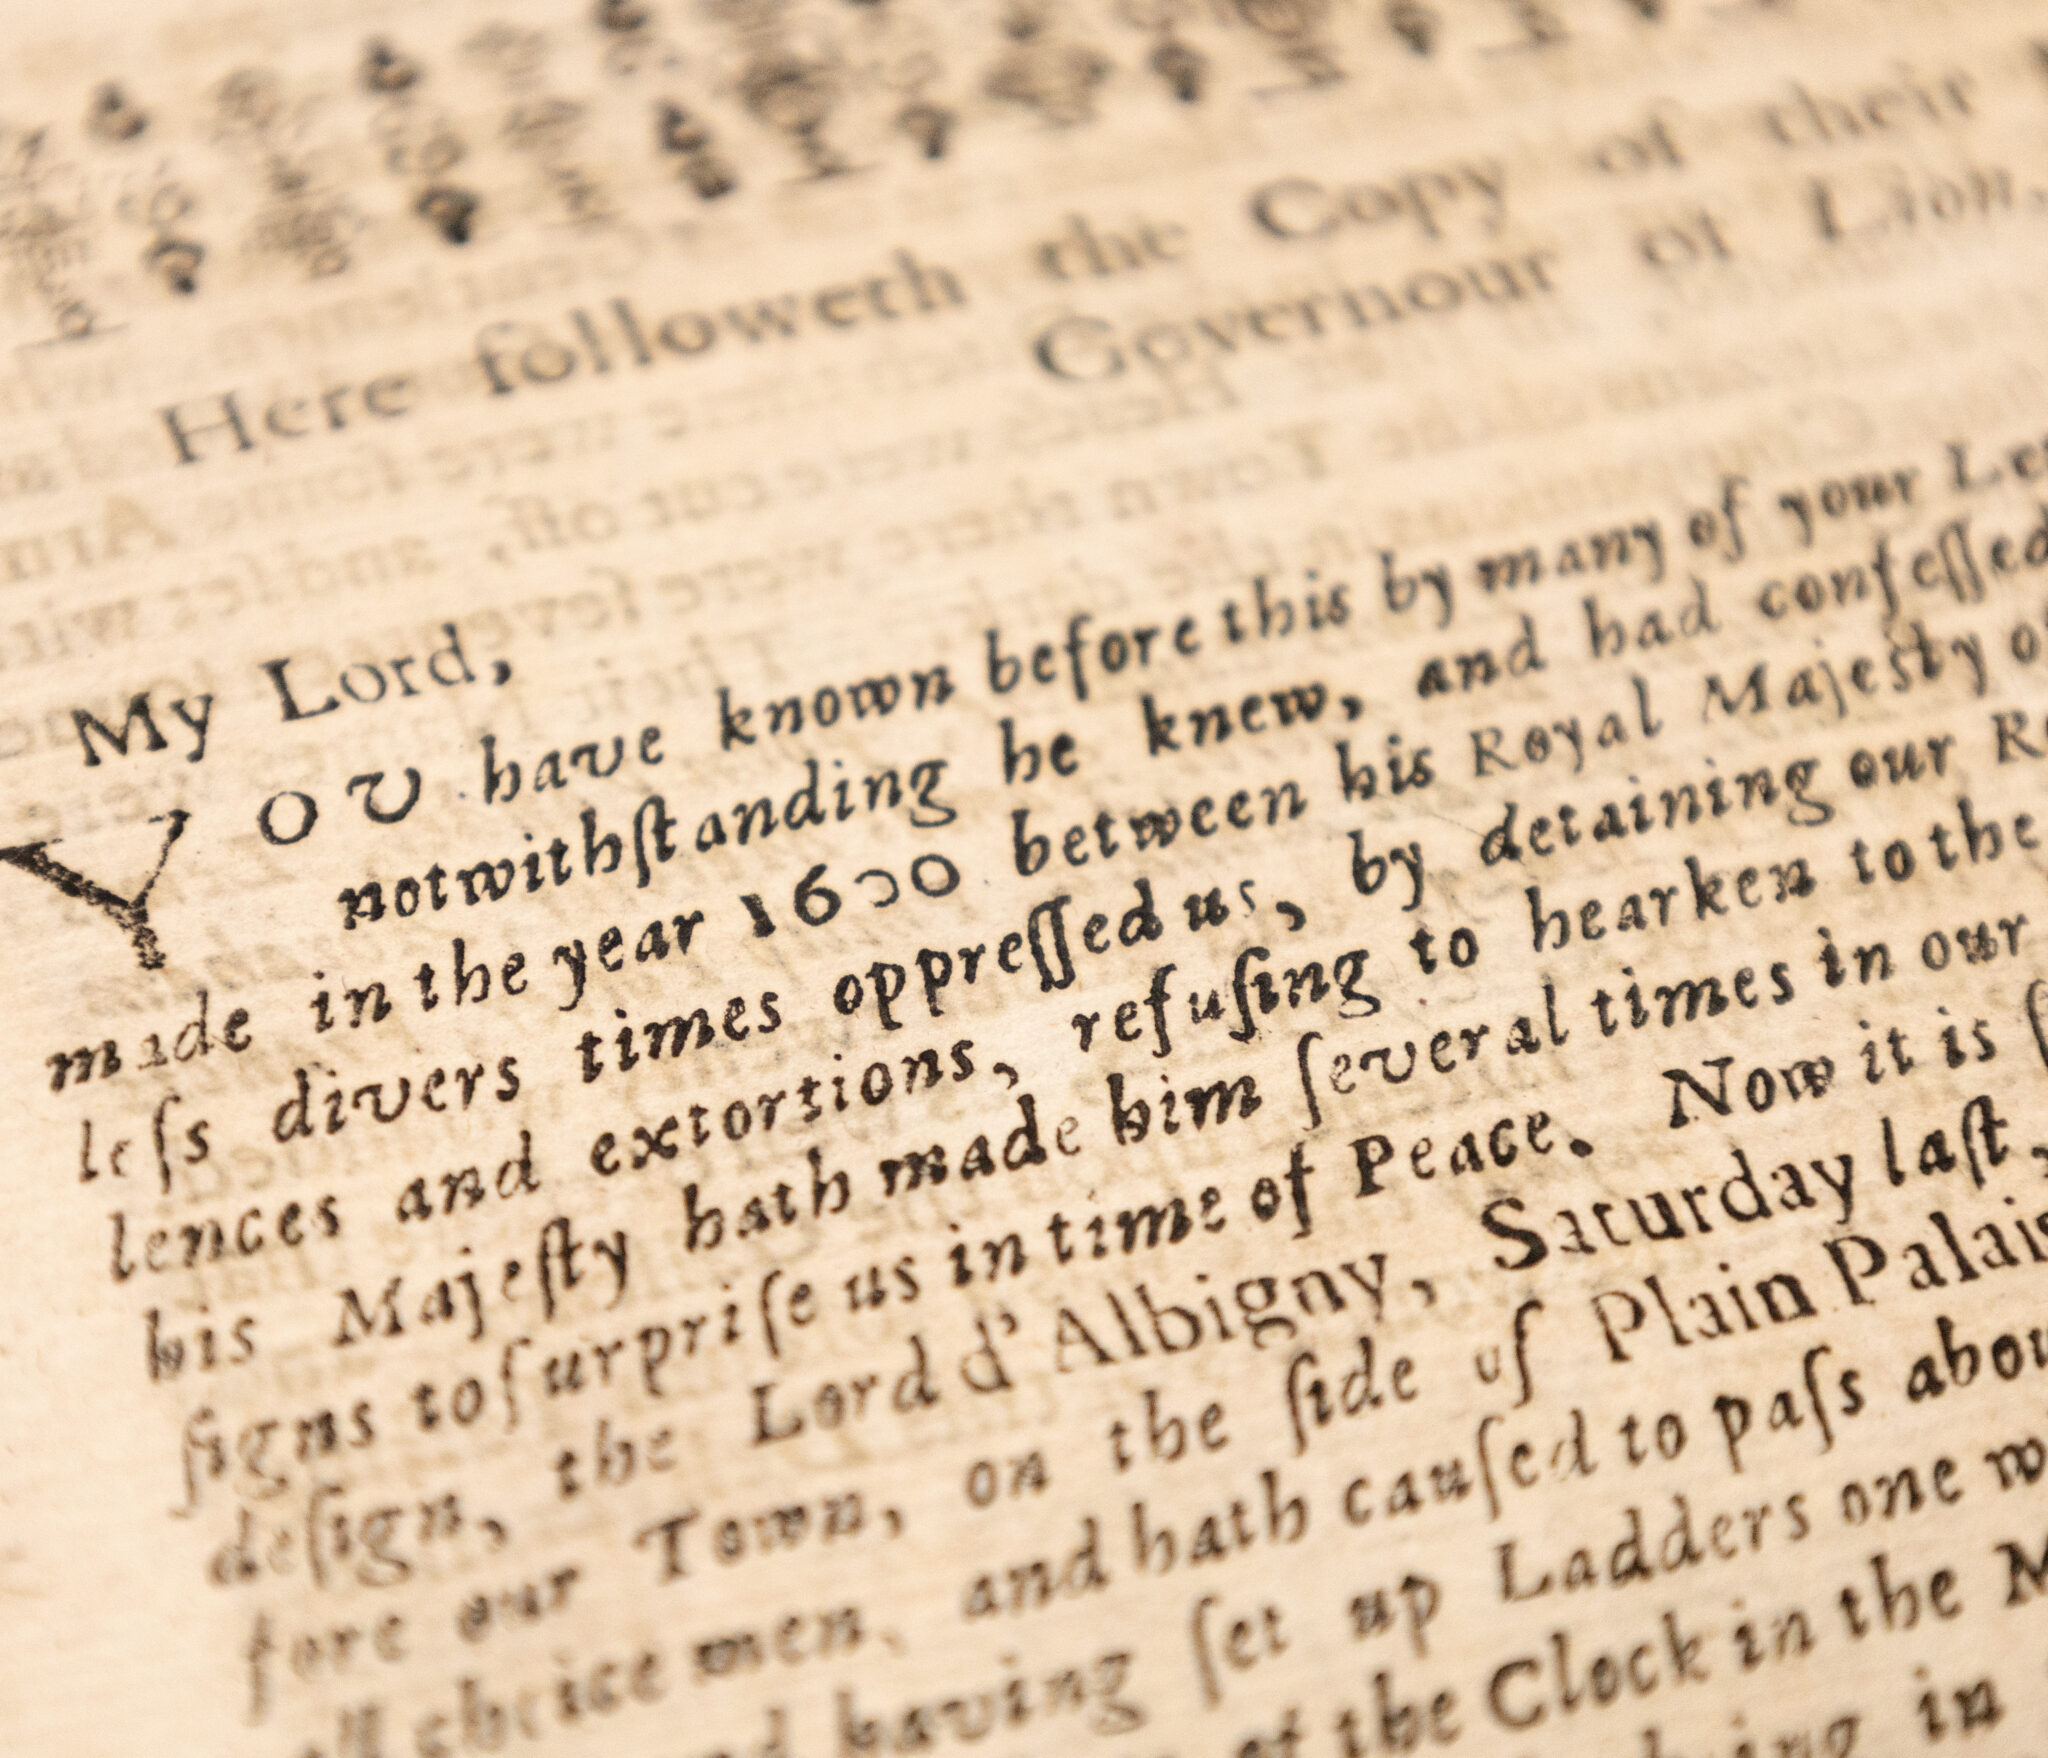 Here followeth the Copy of their
Governour of Lion.
My Lord,
YOU have known before this by many of your
notwithſtanding he knew, and had confeſſed
made in the year 1600 between his Royal Majeſty
leſs divers times oppreſſed us, by detaining our
lences and extortions, refuſing to hearken to the
his Majeſty hath made him ſeveral times in our
ſigns to ſurpriſe us in time of Peace. Now it is
deſign, the Lord d'Albigny, Saturday laſt,
fore our Town, on the ſide of Plain Palais
choice men, and hath cauſed to paſs
having ſet up Ladders one
of the Clock in the
in